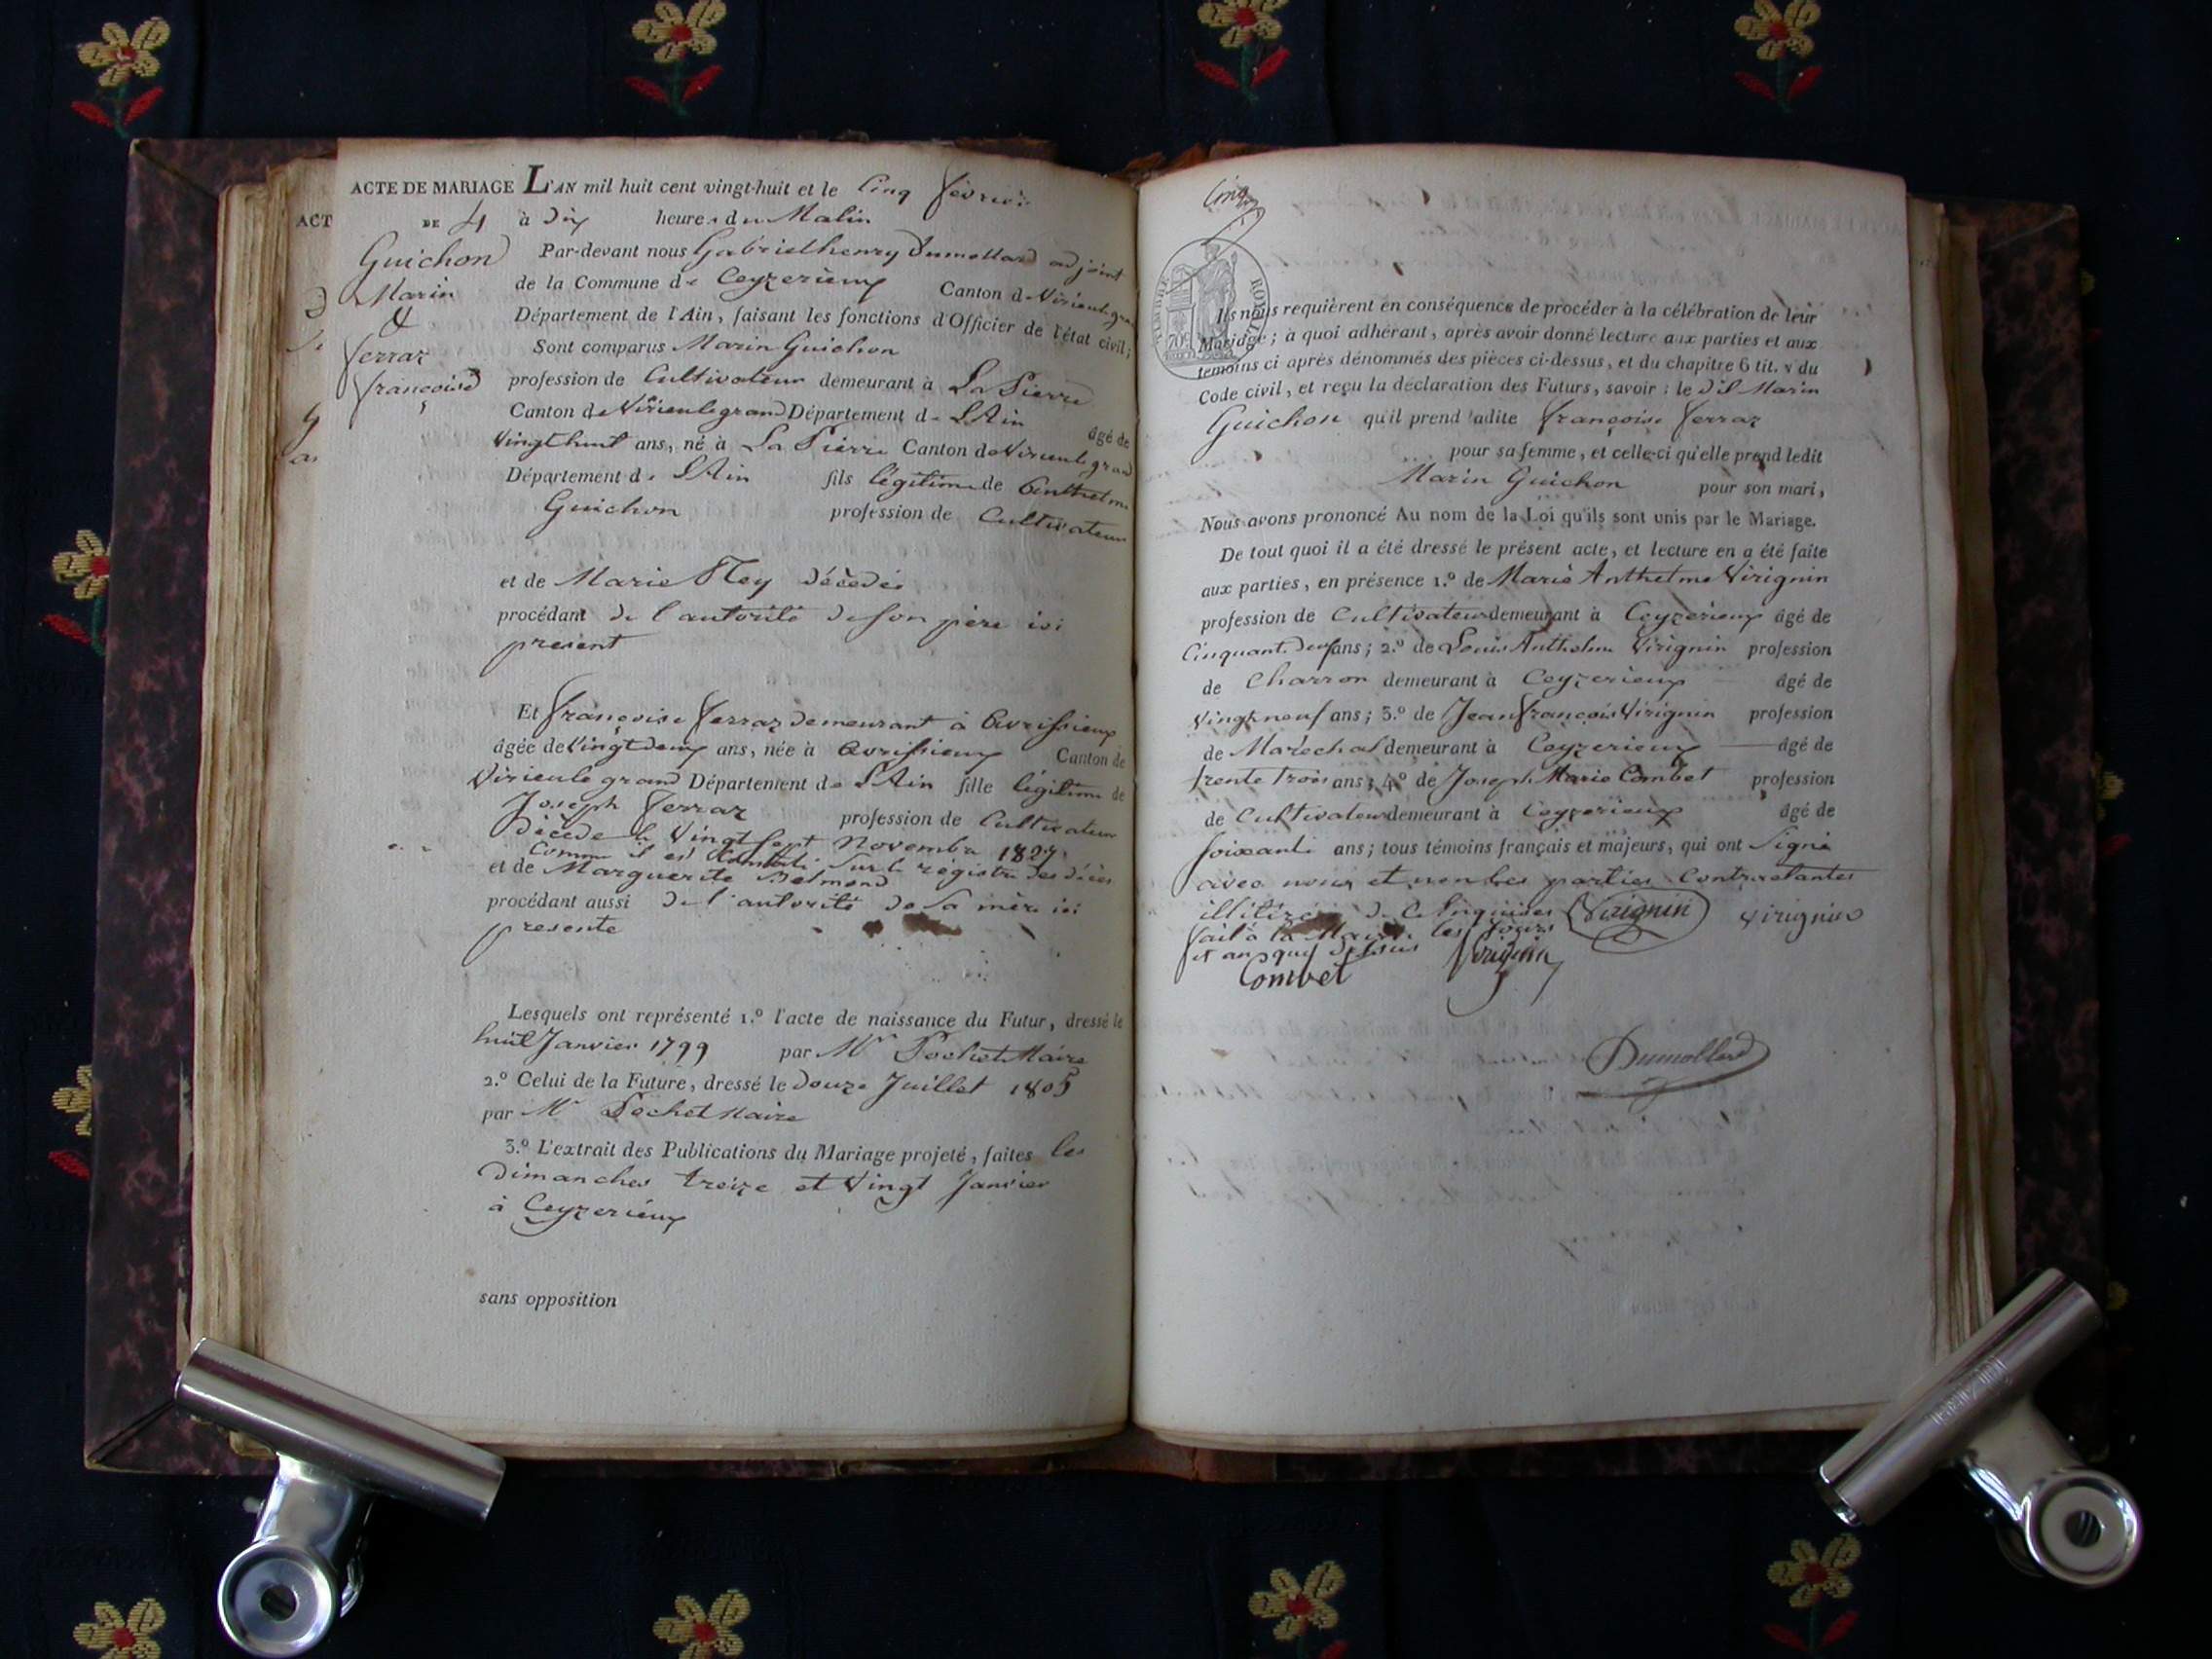 ACTE DE MARIAGE L'AN mil huit cent vingt-huit et le Cinq fevrier
ACT
DE 4 à Dix heures du Matin
Guichon
Marin
&
ferraz
françoise
Par-devant nous Gabriel henry Dumollard adjoint
de la Commune de Ceyzerieux Canton de Virieu le gra
Département de l'Ain, faisant les fonctions d'Officier de l'état civil;
Sont comparus Marin Guichon
profession de Cultivateur demeurant à La Pierre
Canton de Virieu le grand Département de L'Ain âgé de
Vingt huit ans, né à La Pierre Canton de Virieu le grand
Département de L'Ain fils légitime de Anthelme
Guichon profession de Cultivateur
et de Marie décédée
procédant de l'autorité de son père ici
présent
Et françoise ferraz demeurant à Avrissieux
âgée de Vingt deux ans, née à Avrissieux Canton de
Virieu le grand Département de L'Ain fille légitime de
Joseph ferraz profession de Cultivateur
décédé le Vingt sept Novembre 1827
Comme il est Constaté Sur le régistre des décès
et de Marguerite Belmond
procédant aussi de l'autorité de Sa mère ici
presente
Lesquels ont représenté 1.º l'acte de naissance du Futur, dressé le
huit Janvier 1799 par Mr Pochet Maire
2.º Celui de la Future, dressé le douze Juillet 1805
par Mr Pochet Maire
3.º L'extrait des Publications du Mariage projeté, faites les
dimanches treize et Vingt Janvier
à Ceyzerieux
sans opposition
Cinq
TIMBRE ROYAL
70
Ils nous requièrent en conséquence de procéder à la célébration de leur
Mariage; à quoi adhérant, après avoir donné lecture aux parties et aux
témoins ci après dénommés des pièces ci-dessus, et du chapitre 6 tit. v du
Code civil, et reçu la déclaration des Futurs, savoir: le dit Marin
Guichon qu'il prend ladite françoise ferraz
pour sa femme, et celle-ci qu'elle prend ledit
Marin Guichon pour son mari,
Nous avons prononcé Au nom de la Loi qu'ils sont unis par le Mariage.
De tout quoi il a été dressé le présent acte, et lecture en a été faite
aux parties, en présence 1.º de Marie Anthelme Virignin
profession de Cultivateur demeurant à Ceyzerieux âgé de
Cinquante deux ans; 2.º de Louis Anthelme Virignin profession
de Charron demeurant à Ceyzerieux âgé de
Vingt neuf ans; 3.º de Jean françois Virignin profession
de Maréchal demeurant à Ceyzerieux âgé de
trente trois ans; 4.º de Joseph Marie Combet profession
de Cultivateur demeurant à Ceyzerieux âgé de
soixante ans; tous témoins français et majeurs, qui ont Signé
avec nous et non les parties Contractantes
de Ce Virignin virignin
fait à la Mairie les Jours
et an que dessus Virignin
Combet
Dumollard